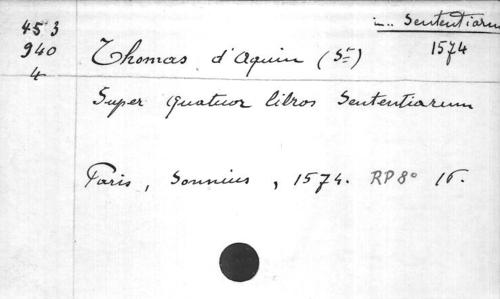 453
940
4
in.. Sententiarum
1574
Thomas d'Aquin (St)
Super quatuor libros Sententiarum
Paris, Sonnius, 1574. RP8° 16.